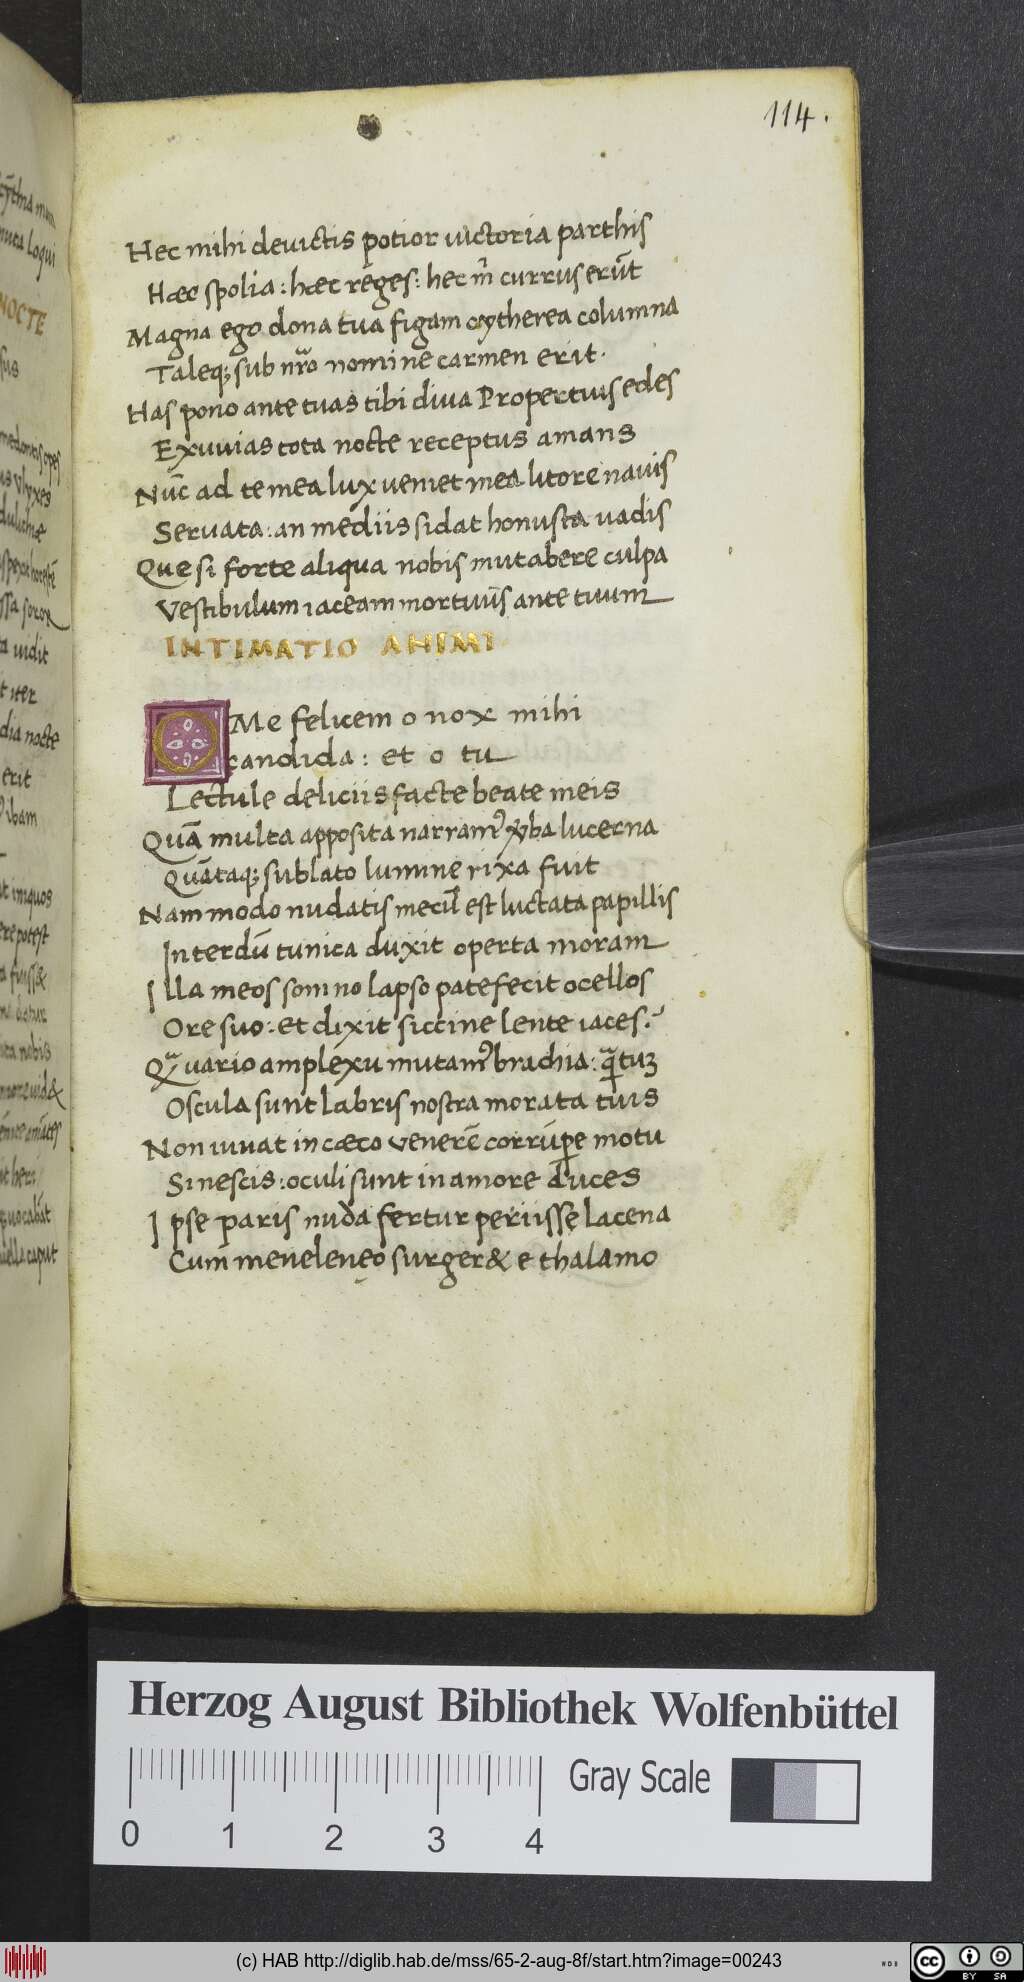 114.
Hec mihi devictis potior victoria parthis
Hæc spolia: hæc reges: hec m̃ currus erũt
Magna ego dona tua figam cytherea columna
Taleq; sub nr̃o nomine carmen erit.
Has pono ante tuas tibi diva Propertius edes
Exuvias tota nocte receptus amans
Nũc ad te mea lux veniet mea litore navis
Servata: an mediis sidat honusta vadis
Que si forte aliqua nobis mutabere culpa
Vestibulum iaceam mortuus ante tuum
INTIMATIO ANIMI
O Me felicem o nox mihi
candida: et o tu
Lectule deliciis facte beate meis
Quã multa apposita narram᾽ ṽba lucerna
Quãtaq; sublato lumine rixa fuit
Nam modo nudatis mecũ est luctata papillis
Interdũ tunica duxit operta moram
Illa meos somno lapso patefecit ocellos
Ore suo: et dixit siccine lente iaces?
Qã vario amplexu mutam᾽ brachia: qãtuʒ
Oscula sunt labris nostra morata tuis
Non iuvat in cæco venerẽ corrũpe motu
Si nescis: oculi sunt in amore duces
Ipse paris nuda fertur periisse lacena
Cum meneleneo surger& e thalamo
NOCTE
sus
uidit
t iter
dia nocte
erit
ibam
Herzog August Bibliothek Wolfenbüttel
0 1 2 3 4
Gray Scale
(c) HAB http://diglib.hab.de/mss/65-2-aug-8f/start.htm?image=00243
cc BY SA